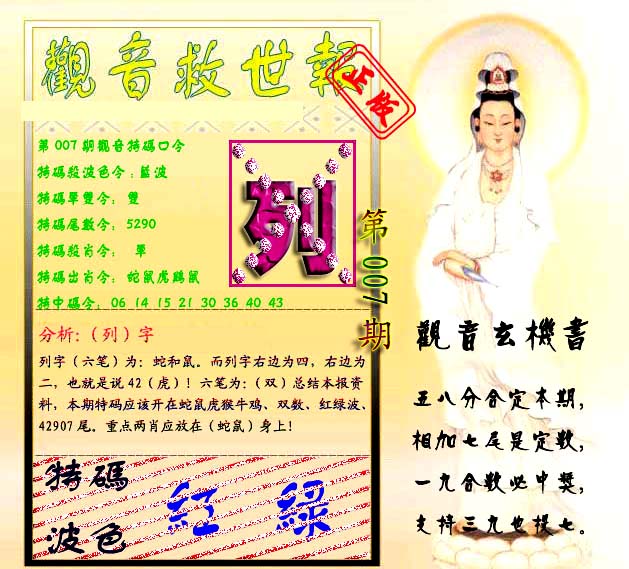 觀音救世報
正版
第007期觀音特碼口令
特碼殺波色令:藍波
特碼單雙令: 雙
特碼尾數令: 5290
特碼殺肖令: 單
特碼出肖令: 蛇鼠虎鷄鼠
特中碼令: 06 14 15 21 30 36 40 43
列
第007期
分析:(列)字
列字(六笔)为:蛇和鼠。而列字右边为四,右边为
二,也就是说42(虎)!六笔为:(双)总结本报资
料,本期特码应该开在蛇鼠虎猴牛鸡、双数、红绿波、
42907尾。重点两肖应放在(蛇鼠)身上!
特碼
波色
紅 綠
觀音玄機書
五八分合定本期,
相加七尾是定数,
一九合数必中獎,
支持三九也提七。